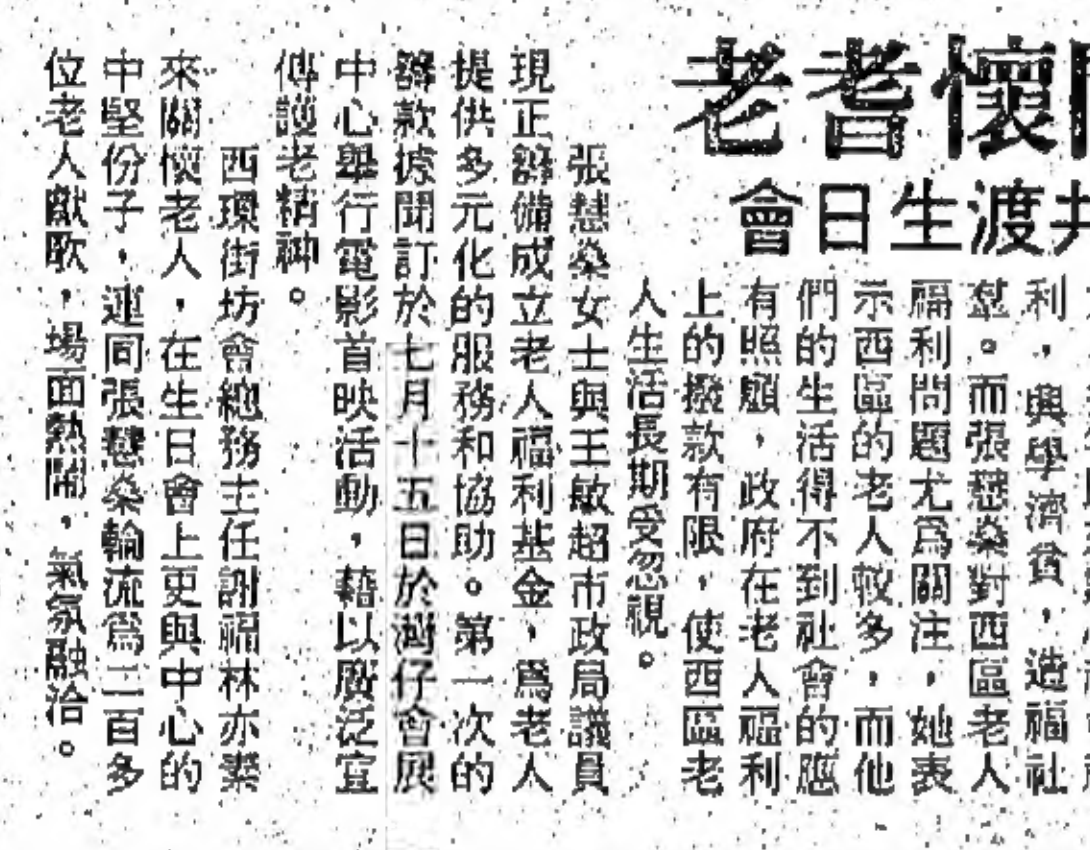 懷耆老
共渡生日會
利，興學濟貧，造福社
羣。而張慧燊對西區老人
福利問題尤爲關注，她表
示西區的老人較多，而他
們的生活得不到社會的應
有照顧，政府在老人福利
上的撥款有限，使西區老
人生活長期受忽視。
張慧燊女士與王敏超市政局議員
現正籌備成立老人福利基金，爲老人
提供多元化的服務和協助。第一次的
籌款據聞訂於七月十五日於灣仔會展
中心舉行電影首映活動，藉以廣泛宣
傳護老精神。
西環街坊會總務主任謝福林亦素
來關懷老人，在生日會上更與中心的
中堅份子，連同張慧燊輪流爲二百多
位老人獻歌，場面熱鬧，氣氛融洽。